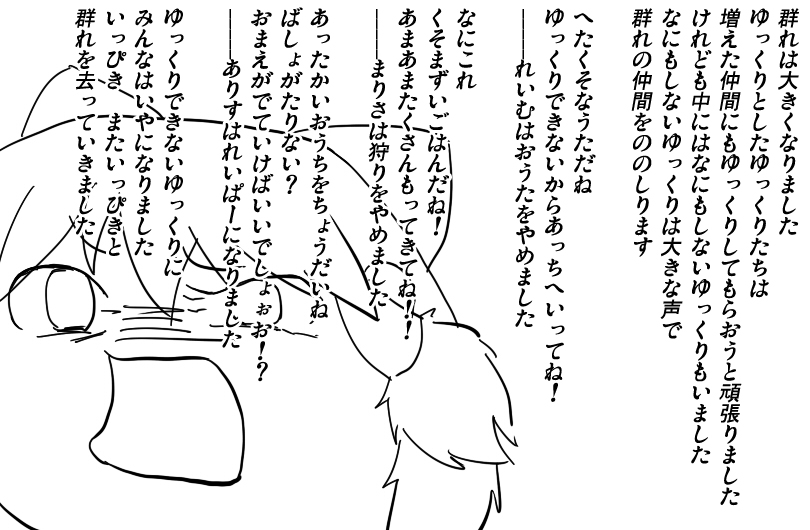 群れは大きくなりました
ゆっくりとしたゆっくりたちは
増えた仲間にもゆっくりしてもらおうと頑張りました
けれども中にはなにもしないゆっくりもいました
なにもしないゆっくりは大きな声で
群れの仲間をののしります
へたくそなうただね
ゆっくりできないからあっちへいってね!
――れいむはおうたをやめました
なにこれ
くそまずいごはんだね!
あまあまたくさんもってきてね!!
――まりさは狩りをやめました
あったかいおうちをちょうだいね
ばしょがたりない?
おまえがでていけばいいでしょぉぉ!?
――ありすはれいぱーになりました
ゆっくりできないゆっくりに
みんなはいやになりました
いっぴき またいっぴきと
群れを去っていきました